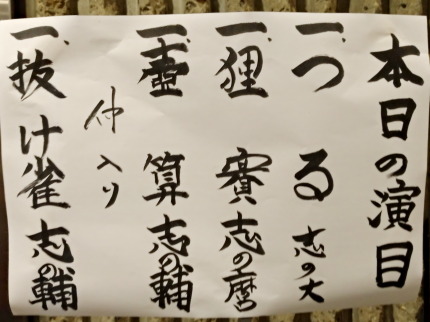 本日の演目
一、つる 志の大
一、狸賽 志の麿
一、壺算 志の輔
仲入り
一、抜け雀 志の輔